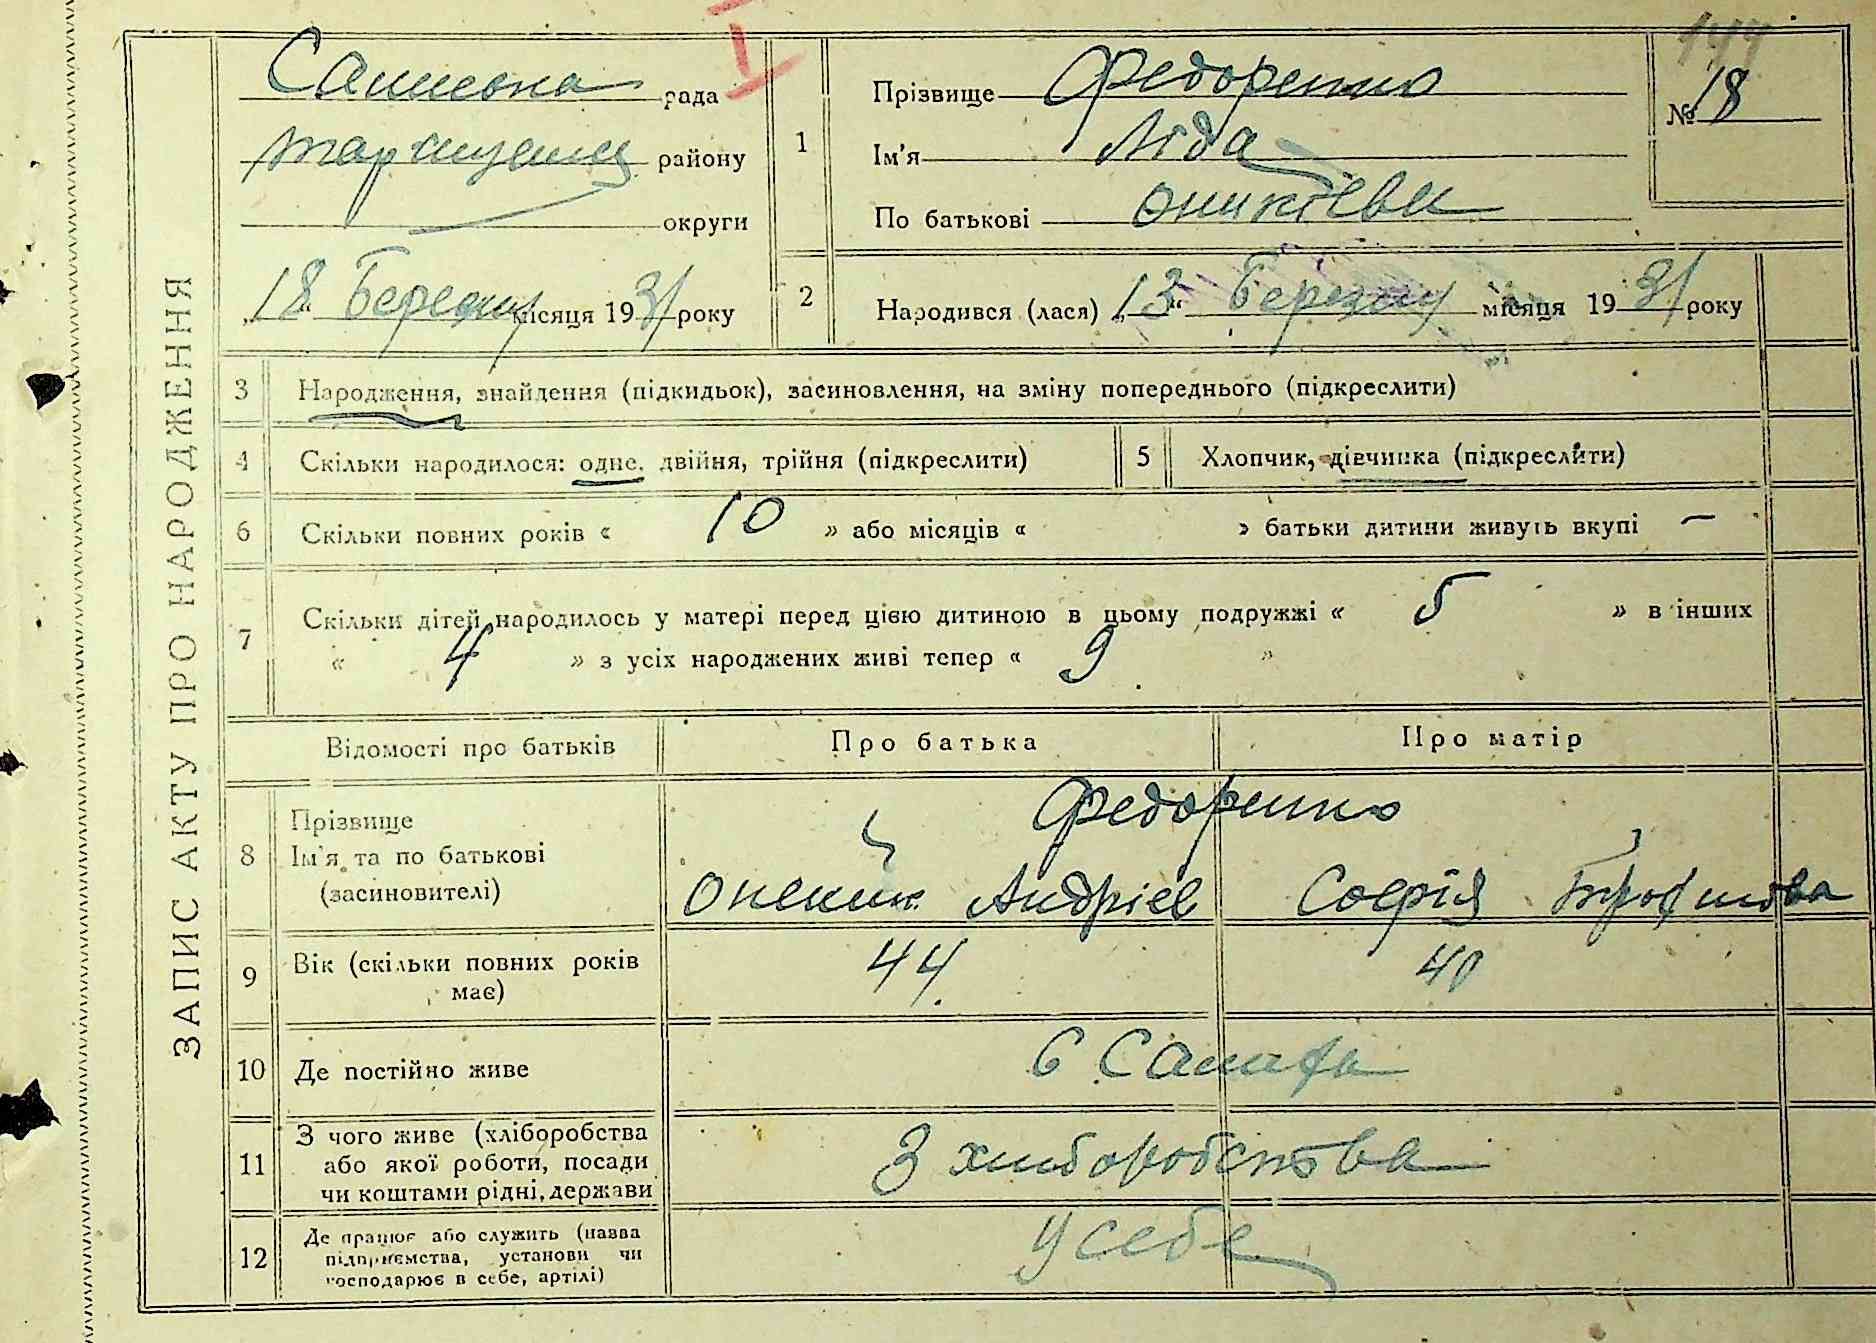 ЗАПИС АКТУ ПРО НАРОДЖЕННЯ
рада
району
округи
„18“ Березня місяця 1931 року
147
№ 18
1
Прізвище Федоренко
Ім'я Ліда
По батькові Оникієва
2
Народився (лася) „13“ Березня місяця 1931 року
3 Народження, знайдення (підкидьок), засиновлення, на зміну попереднього (підкреслити)
4 Скільки народилося: одне, двійня, трійня (підкреслити)
5 Хлопчик, дівчинка (підкреслити)
6 Скільки повних років « 10 » або місяців « » батьки дитини живуть вкупі —
7 Скільки дітей народилось у матері перед цією дитиною в цьому подружжі « 5 » в інших
« 4 » з усіх народжених живі тепер « 9 »
Відомості про батьків
Про батька
Про матір
8
Прізвище
Ім'я та по батькові
(засиновителі)
Федоренко
Андріев
Софія Трофимова
9
Вік (скільки повних років
має)
44
40
10 Де постійно живе
с
11
З чого живе (хліборобства
або якої роботи, посади
чи коштами рідні, держави
З хліборобства
12
Де працює або служить (назва
підприємства, установи чи
господарює в себе, артілі)
У себе